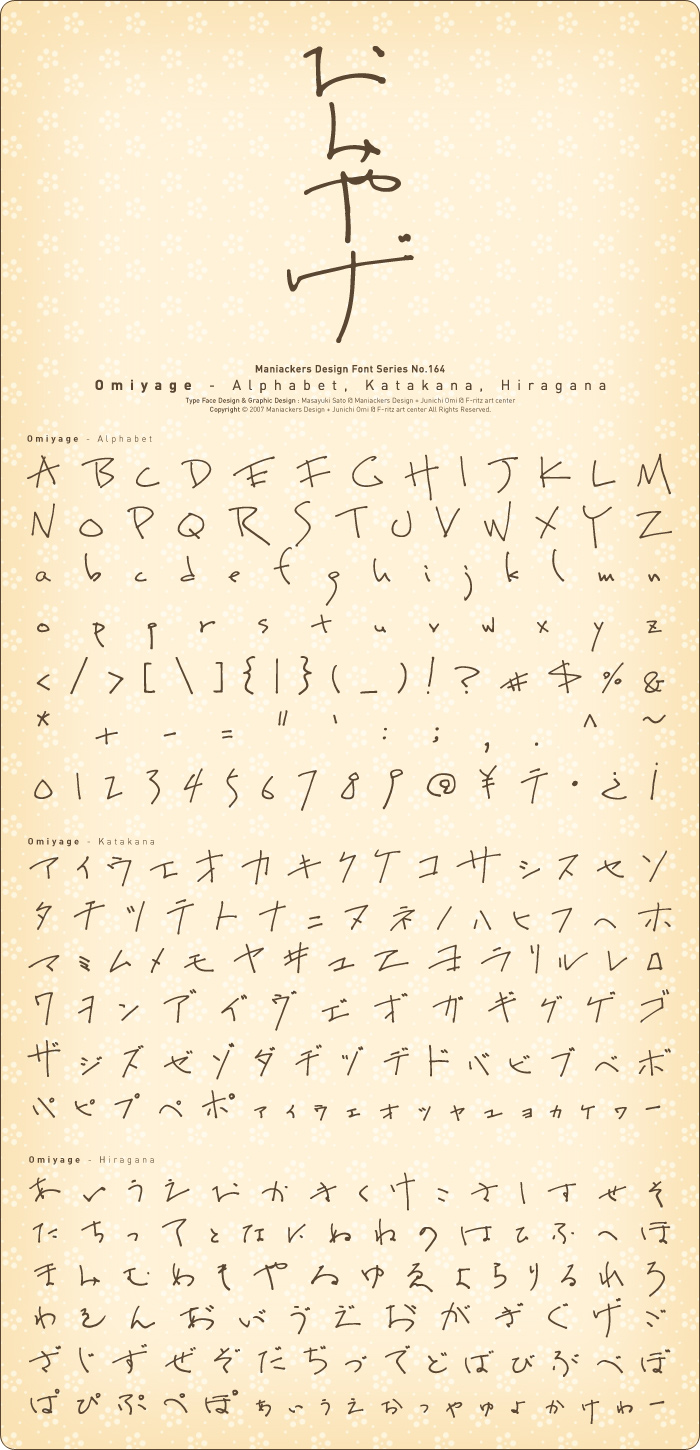 おみやげ
Maniackers Design Font Series No.164
Omiyage - Alphabet, Katakana, Hiragana
Type Face Design & Graphic Design : Masayuki Sato @ Maniackers Design + Junichi Omi @ F-ritz art center
Copyright © 2007 Maniackers Design + Junichi Omi @ F-ritz art center All Rights Reserved.
Omiyage - Alphabet
A B C D E F G H I J K L M
N O P Q R S T U V W X Y Z
a b c d e f g h i j k l m n
o p q r s t u v w x y z
< / > [ \ ] { | } ( _ ) ! ? # $ % &
* + - = " ' : ; , . ^ ~
0 1 2 3 4 5 6 7 8 9 @ ¥ テ ・ ¿ ¡
Omiyage - Katakana
ア イ ウ エ オ カ キ ク ケ コ サ シ ス セ ソ
タ チ ツ テ ト ナ ニ ヌ ネ ノ ハ ヒ フ ヘ ホ
マ ミ ム メ モ ヤ ヰ ユ ヱ ヨ ラ リ ル レ ロ
ワ ヲ ン ア゛ イ゛ ヴ エ゛ オ゛ ガ ギ グ ゲ ゴ
ザ ジ ズ ゼ ゾ ダ ヂ ヅ デ ド バ ビ ブ ベ ボ
パ ピ プ ペ ポ ァ ィ ゥ ェ ォ ッ ャ ュ ョ ヵ ヶ ヮ ー
Omiyage - Hiragana
あ い う え お か き く け こ さ し す せ そ
た ち つ て と な に ぬ ね の は ひ ふ へ ほ
ま み む め も や ゐ ゆ ゑ よ ら り る れ ろ
わ を ん あ゛ い゛ う゛ え゛ お゛ が ぎ ぐ げ ご
ざ じ ず ぜ ぞ だ ぢ づ で ど ば び ぶ べ ぼ
ぱ ぴ ぷ ぺ ぽ ぁ ぃ ぅ ぇ ぉ っ ゃ ゅ ょ か け ゎ ー